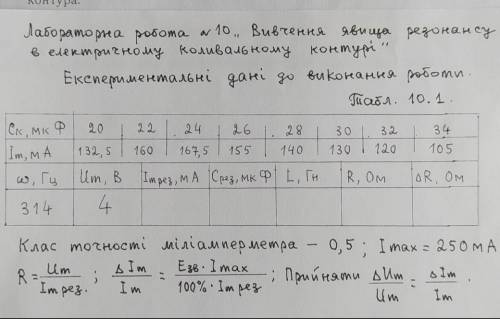 контура.
Лабораторна робота №10 „ Вивчення явища резонансу
в електричному коливальному контурі"
Експериментальні дані до виконання роботи.
Табл. 10.1.
Cк, мкФ 20 22 24 26 28 30 32 34
Im, мА 132,5 160 167,5 155 140 130 120 105
ω, Гц Um, В Im рез, мА Cрез, мкФ L, Гн R, Ом ΔR, Ом
314 4
Клас точності міліамперметра – 0,5 ; Imax = 250 мА
R = Um / Im рез. ; ΔIm / Im = Eзв · Imax / 100% · Im рез ; Прийняти ΔUm / Um = ΔIm / Im .